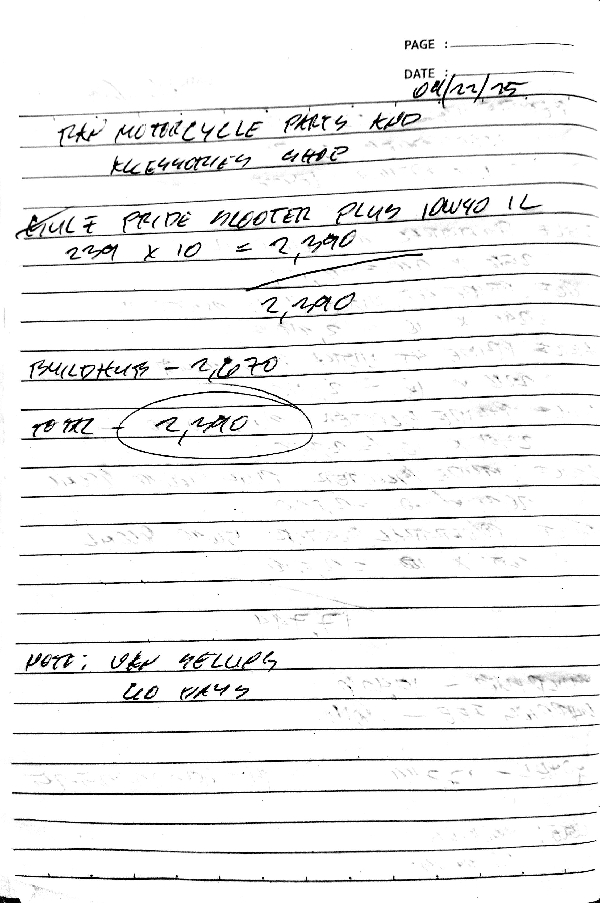 PAGE :
DATE : 04/22/25
MOTORCYCLE PARTS AND
ACCESSORIES SHOP
PRIDE SCOOTER PLUS 10W40 1L
239 x 10 = 2,390
2,390
BUILDHUB - 2,670
TOTAL - 2,390
NOTE: VAN
60 DAYS